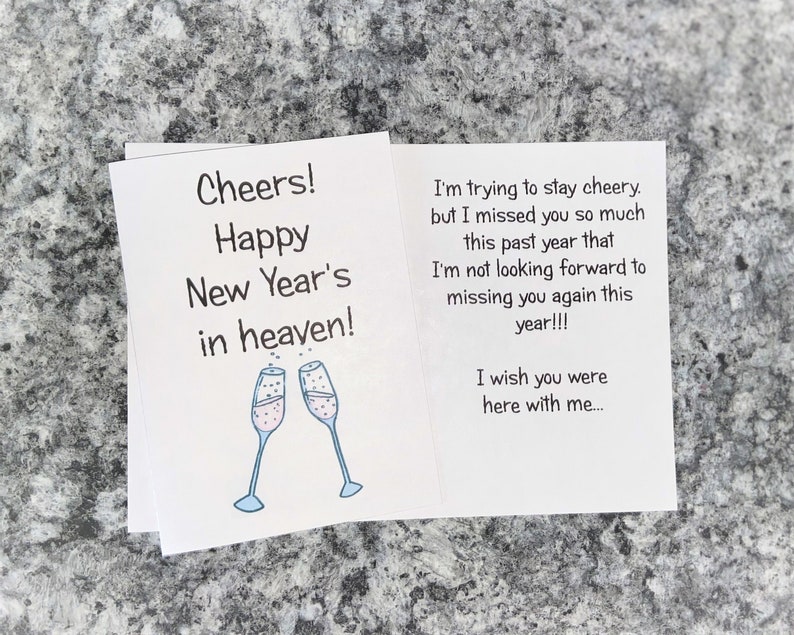 Cheers!
Happy
New Year's
in heaven!
I'm trying to stay cheery.
but I missed you so much
this past year that
I'm not looking forward to
missing you again this
year!!!
I wish you were
here with me...